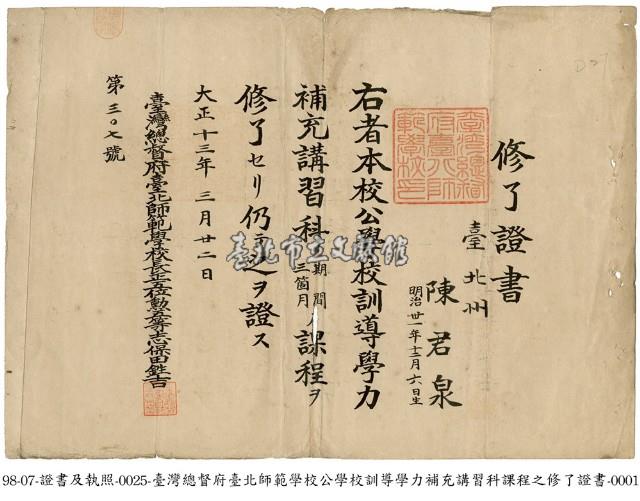 修了證書
臺北州
陳君泉
明治卅一年十二月六日生
右者本校公學校訓導學力
補充講習科期間三箇月課程ヲ
修了セリ仍テ之ヲ證ス
大正十三年三月廿二日
臺灣總督府臺北師範學校長正五位勲五等志保田鉎吉
第三〇七號
臺北市立文獻館
98-07-證書及執照-0025-臺灣總督府臺北師範學校公學校訓導學力補充講習科課程之修了證書-0001